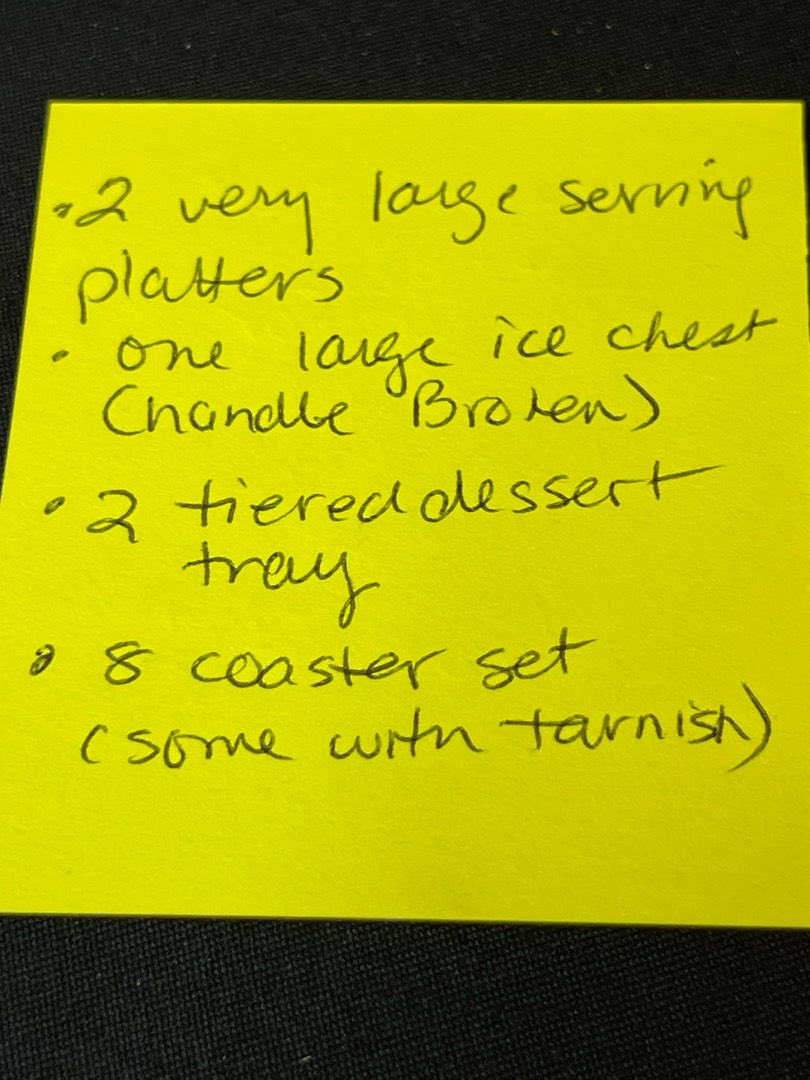 • 2 very large serving
platters
• one large ice chest
(handle Broken)
• 2 tiered dessert
tray
• 8 coaster set
(some with tarnish)